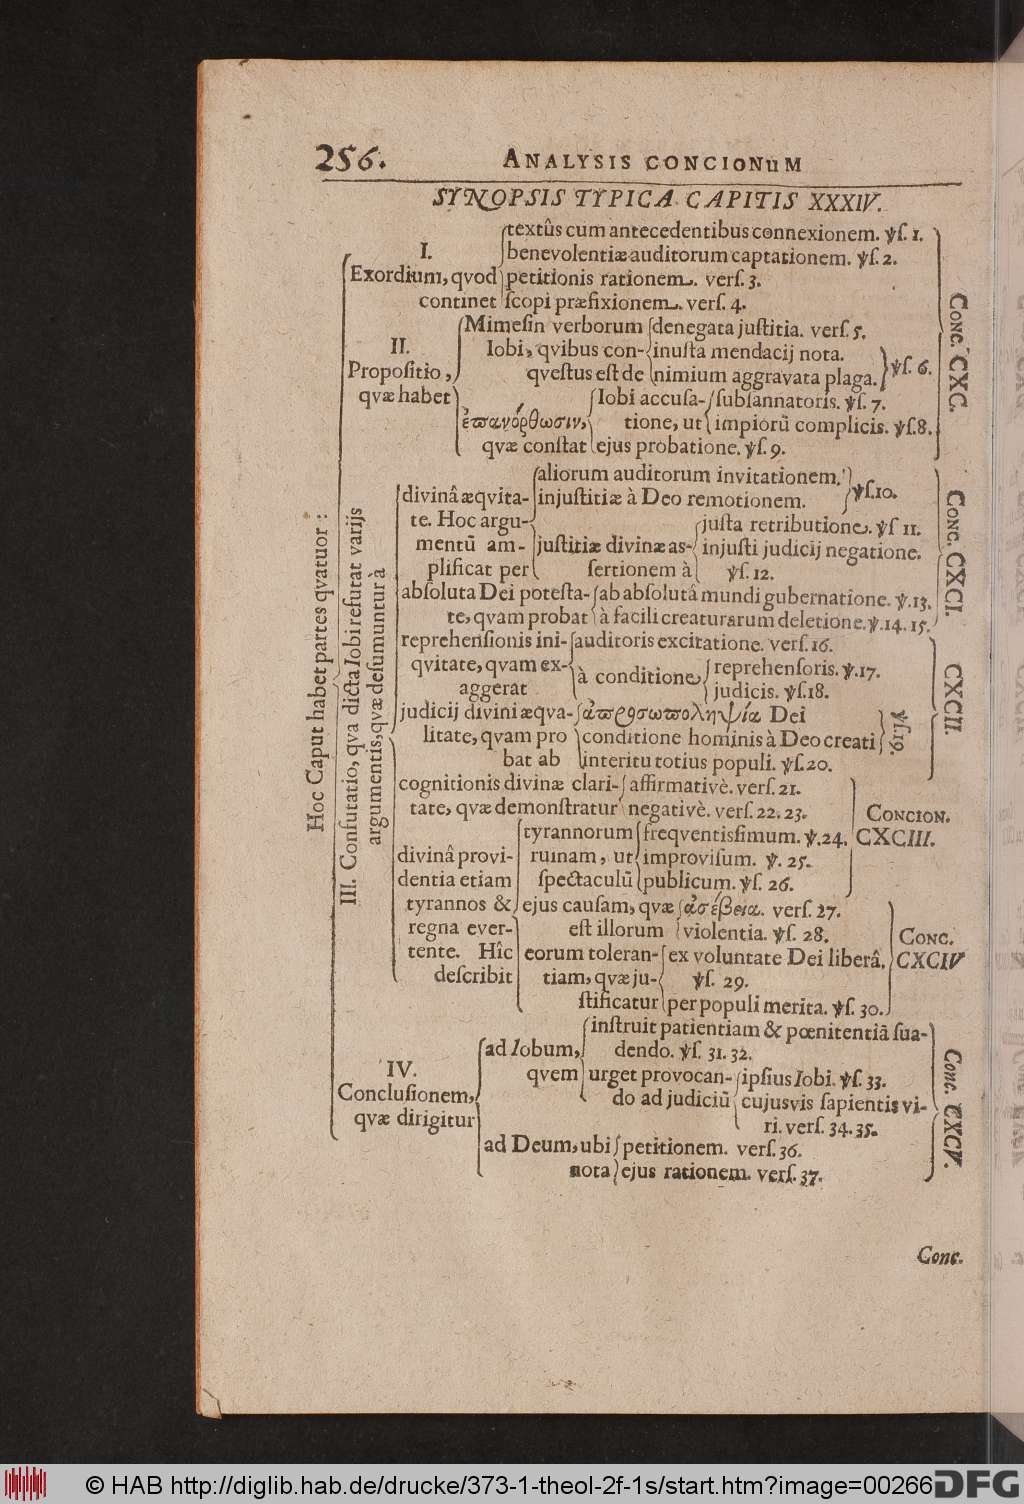 256. ANALYSIS CONCIONUM
SYNOPSIS TYPICA CAPITIS XXXIV.
Hoc Caput habet partes qvatuor:
I.
Exordium, qvod
continet
textûs cum antecedentibus connexionem. ꝟſ. 1.
benevolentiæ auditorum captationem. ꝟſ. 2.
petitionis rationem. verſ. 3.
ſcopi præfixionem. verſ. 4.
II.
Propoſitio,
qvæ habet
Mimeſin verborum
Iobi, qvibus con-
qveſtus eſt de
denegata juſtitia. verſ. 5.
inuſta mendacij nota.
nimium aggravata plaga.
ꝟſ. 6.
ἐπανόρθωσιν,
qvæ conſtat
Iobi accuſa-
tione, ut
ſubſannatoris. ꝟſ. 7.
impiorũ complicis. ꝟſ. 8.
ejus probatione. ꝟſ. 9.
CONC. CXC.
III. Confutatio, qva dicta Iobi refutat varijs
argumentis, qvæ deſumuntur à
divinâ æqvita-
te. Hoc argu-
mentũ am-
plificat per
aliorum auditorum invitationem.
injuſtitiæ à Deo remotionem.
ꝟſ. 10.
juſtitiæ divinæ as-
ſertionem à
juſta retributione. ꝟſ 11.
injuſti judicij negatione.
ꝟſ. 12.
abſoluta Dei poteſta-
te, qvam probat
ab abſolutâ mundi gubernatione. ꝟ. 13.
à facili creaturarum deletione. ꝟ. 14. 15.
CONC. CXCI.
reprehenſionis ini-
qvitate, qvam ex-
aggerat
auditoris excitatione. verſ. 16.
à conditione
reprehenſoris. ꝟ. 17.
judicis. ꝟſ. 18.
judicij divini æqva-
litate, qvam pro
bat ab
ἀπροσωποληψίᾳ Dei
conditione hominis à Deo creati
ꝟſ. 19.
interitu totius populi. ꝟſ. 20.
CXCII.
cognitionis divinæ clari-
tate, qvæ demonſtratur
affirmativè. verſ. 21.
negativè. verſ. 22. 23.
divinâ provi-
dentia etiam
tyrannos &
regna ever-
tente. Hîc
deſcribit
tyrannorum
ruinam, ut
ſpectaculũ
freqventisſimum. ꝟ. 24.
improviſum. ꝟ. 25.
publicum. ꝟſ. 26.
CONCION.
CXCIII.
ejus cauſam, qvæ
eſt illorum
ἀσέβεια. verſ. 27.
violentia. ꝟſ. 28.
eorum toleran-
tiam, qvæ ju-
ſtificatur
ex voluntate Dei liberâ.
ꝟſ. 29.
per populi merita. ꝟſ. 30.
CONC.
CXCIV
IV.
Concluſionem,
qvæ dirigitur
ad Iobum,
qvem
inſtruit patientiam & pœnitentiã ſua-
dendo. ꝟſ. 31. 32.
urget provocan-
do ad judiciũ
ipſius Iobi. ꝟſ. 33.
cujusvis ſapientis vi-
ri. verſ. 34. 35.
ad Deum, ubi
nota
petitionem. verſ. 36.
ejus rationem. verſ. 37.
Conc. CXCV.
Conc.
© HAB http://diglib.hab.de/drucke/373-1-theol-2f-1s/start.htm?image=00266
DFG